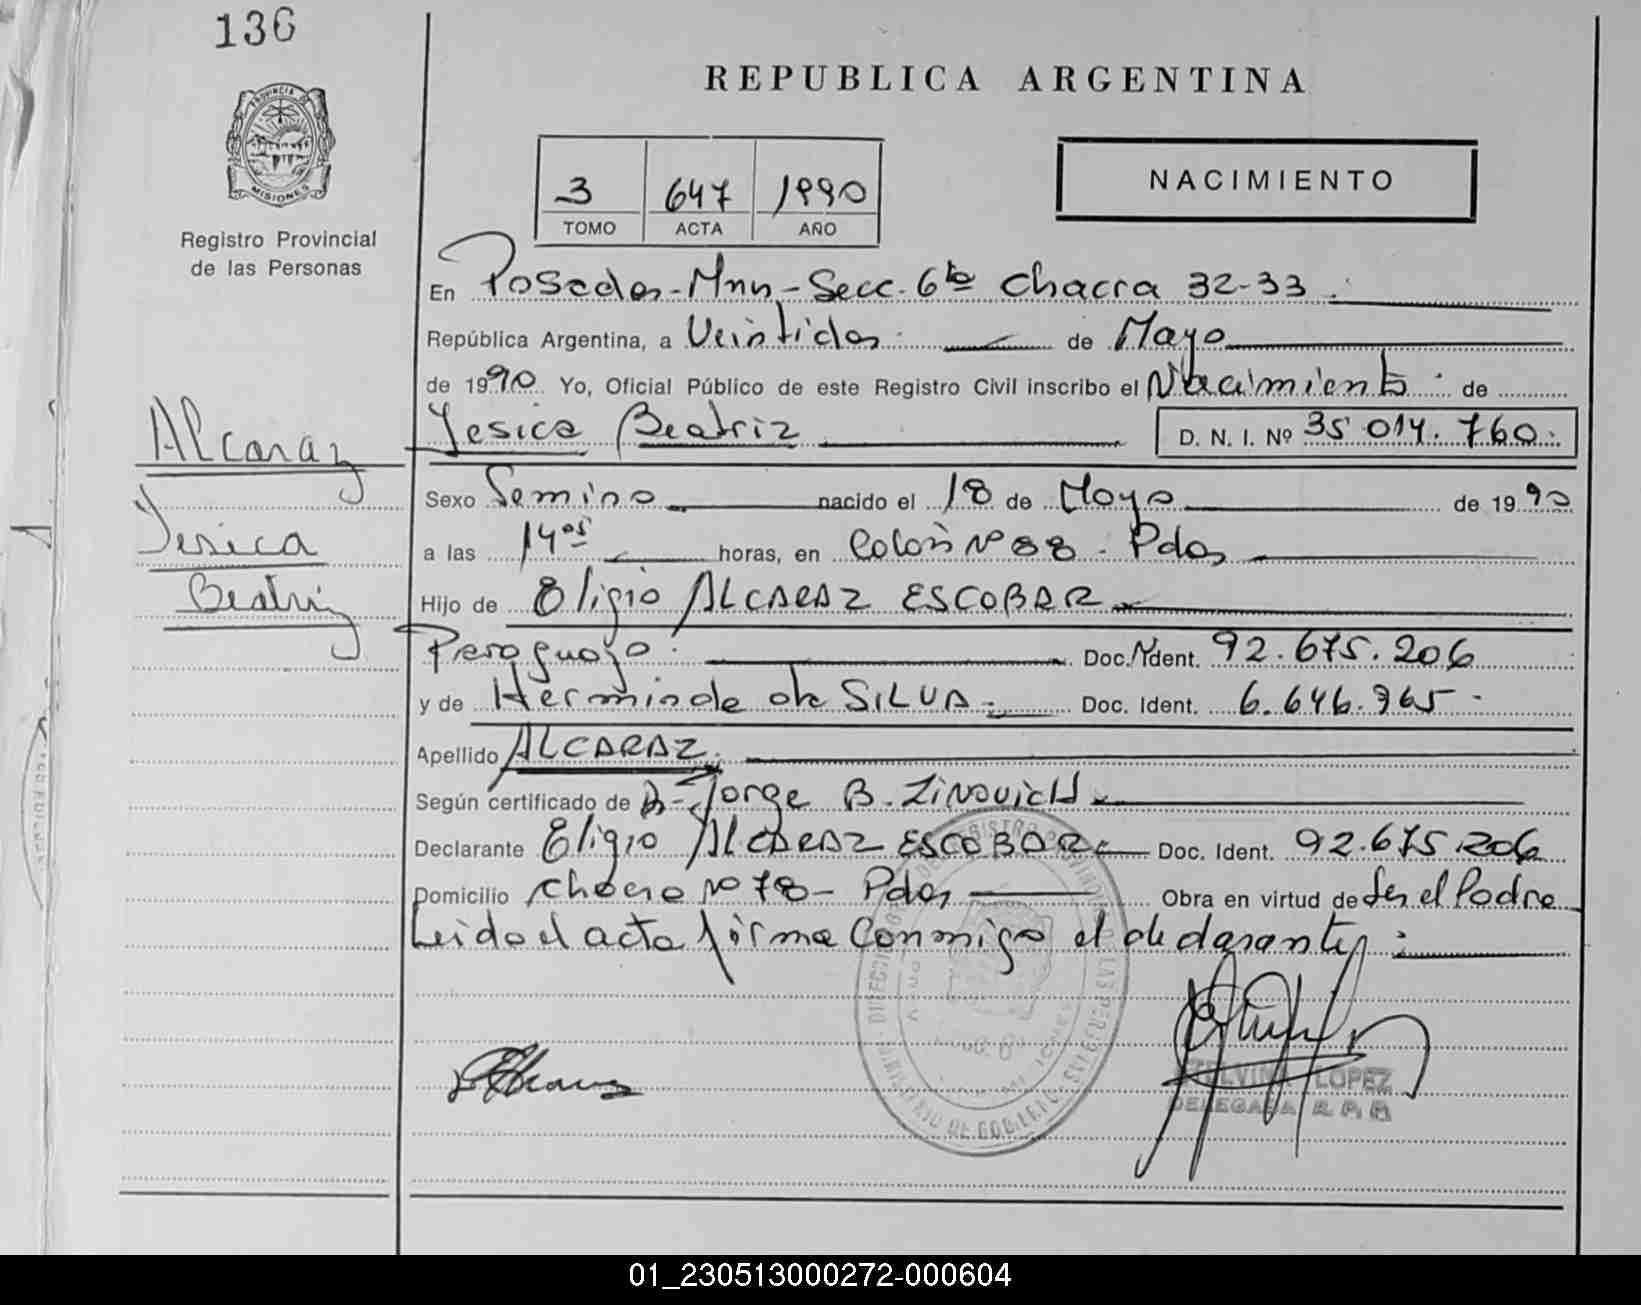 136
REPUBLICA ARGENTINA
PROVINCIA DE
MISIONES
Registro Provincial
de las Personas
3 647 1990
TOMO ACTA AÑO
NACIMIENTO
En Posadas - Mnes - Secc. 6ta Chacra 32-33
República Argentina, a Veintidos de Mayo
de 1990 Yo, Oficial Público de este Registro Civil inscribo el Nacimiento de
Yesica Beatriz D. N. I. Nº 35 014. 760
Alcaraz
Yesica
Beatriz
Sexo Femino nacido el 18 de Mayo de 1990
a las 14 05 horas, en Colón Nº 88 - Pdas
Hijo de Eligio ALCARAZ ESCOBAR
Paraguayo Doc. Ident. 92.675.206
y de Herminda de SILVA Doc. Ident. 6.646.965
Apellido ALCARAZ
Según certificado de Dr Jorge B. ZINOVICH
Declarante Eligio ALCARAZ ESCOBAR Doc. Ident. 92.675.206
Domicilio Chacra Nº 78 - Pdas Obra en virtud de Ser el Padre
Leido el acta firma conmigo el declarante
LOPEZ
DELEGADA R. P. P.
01_230513000272-000604